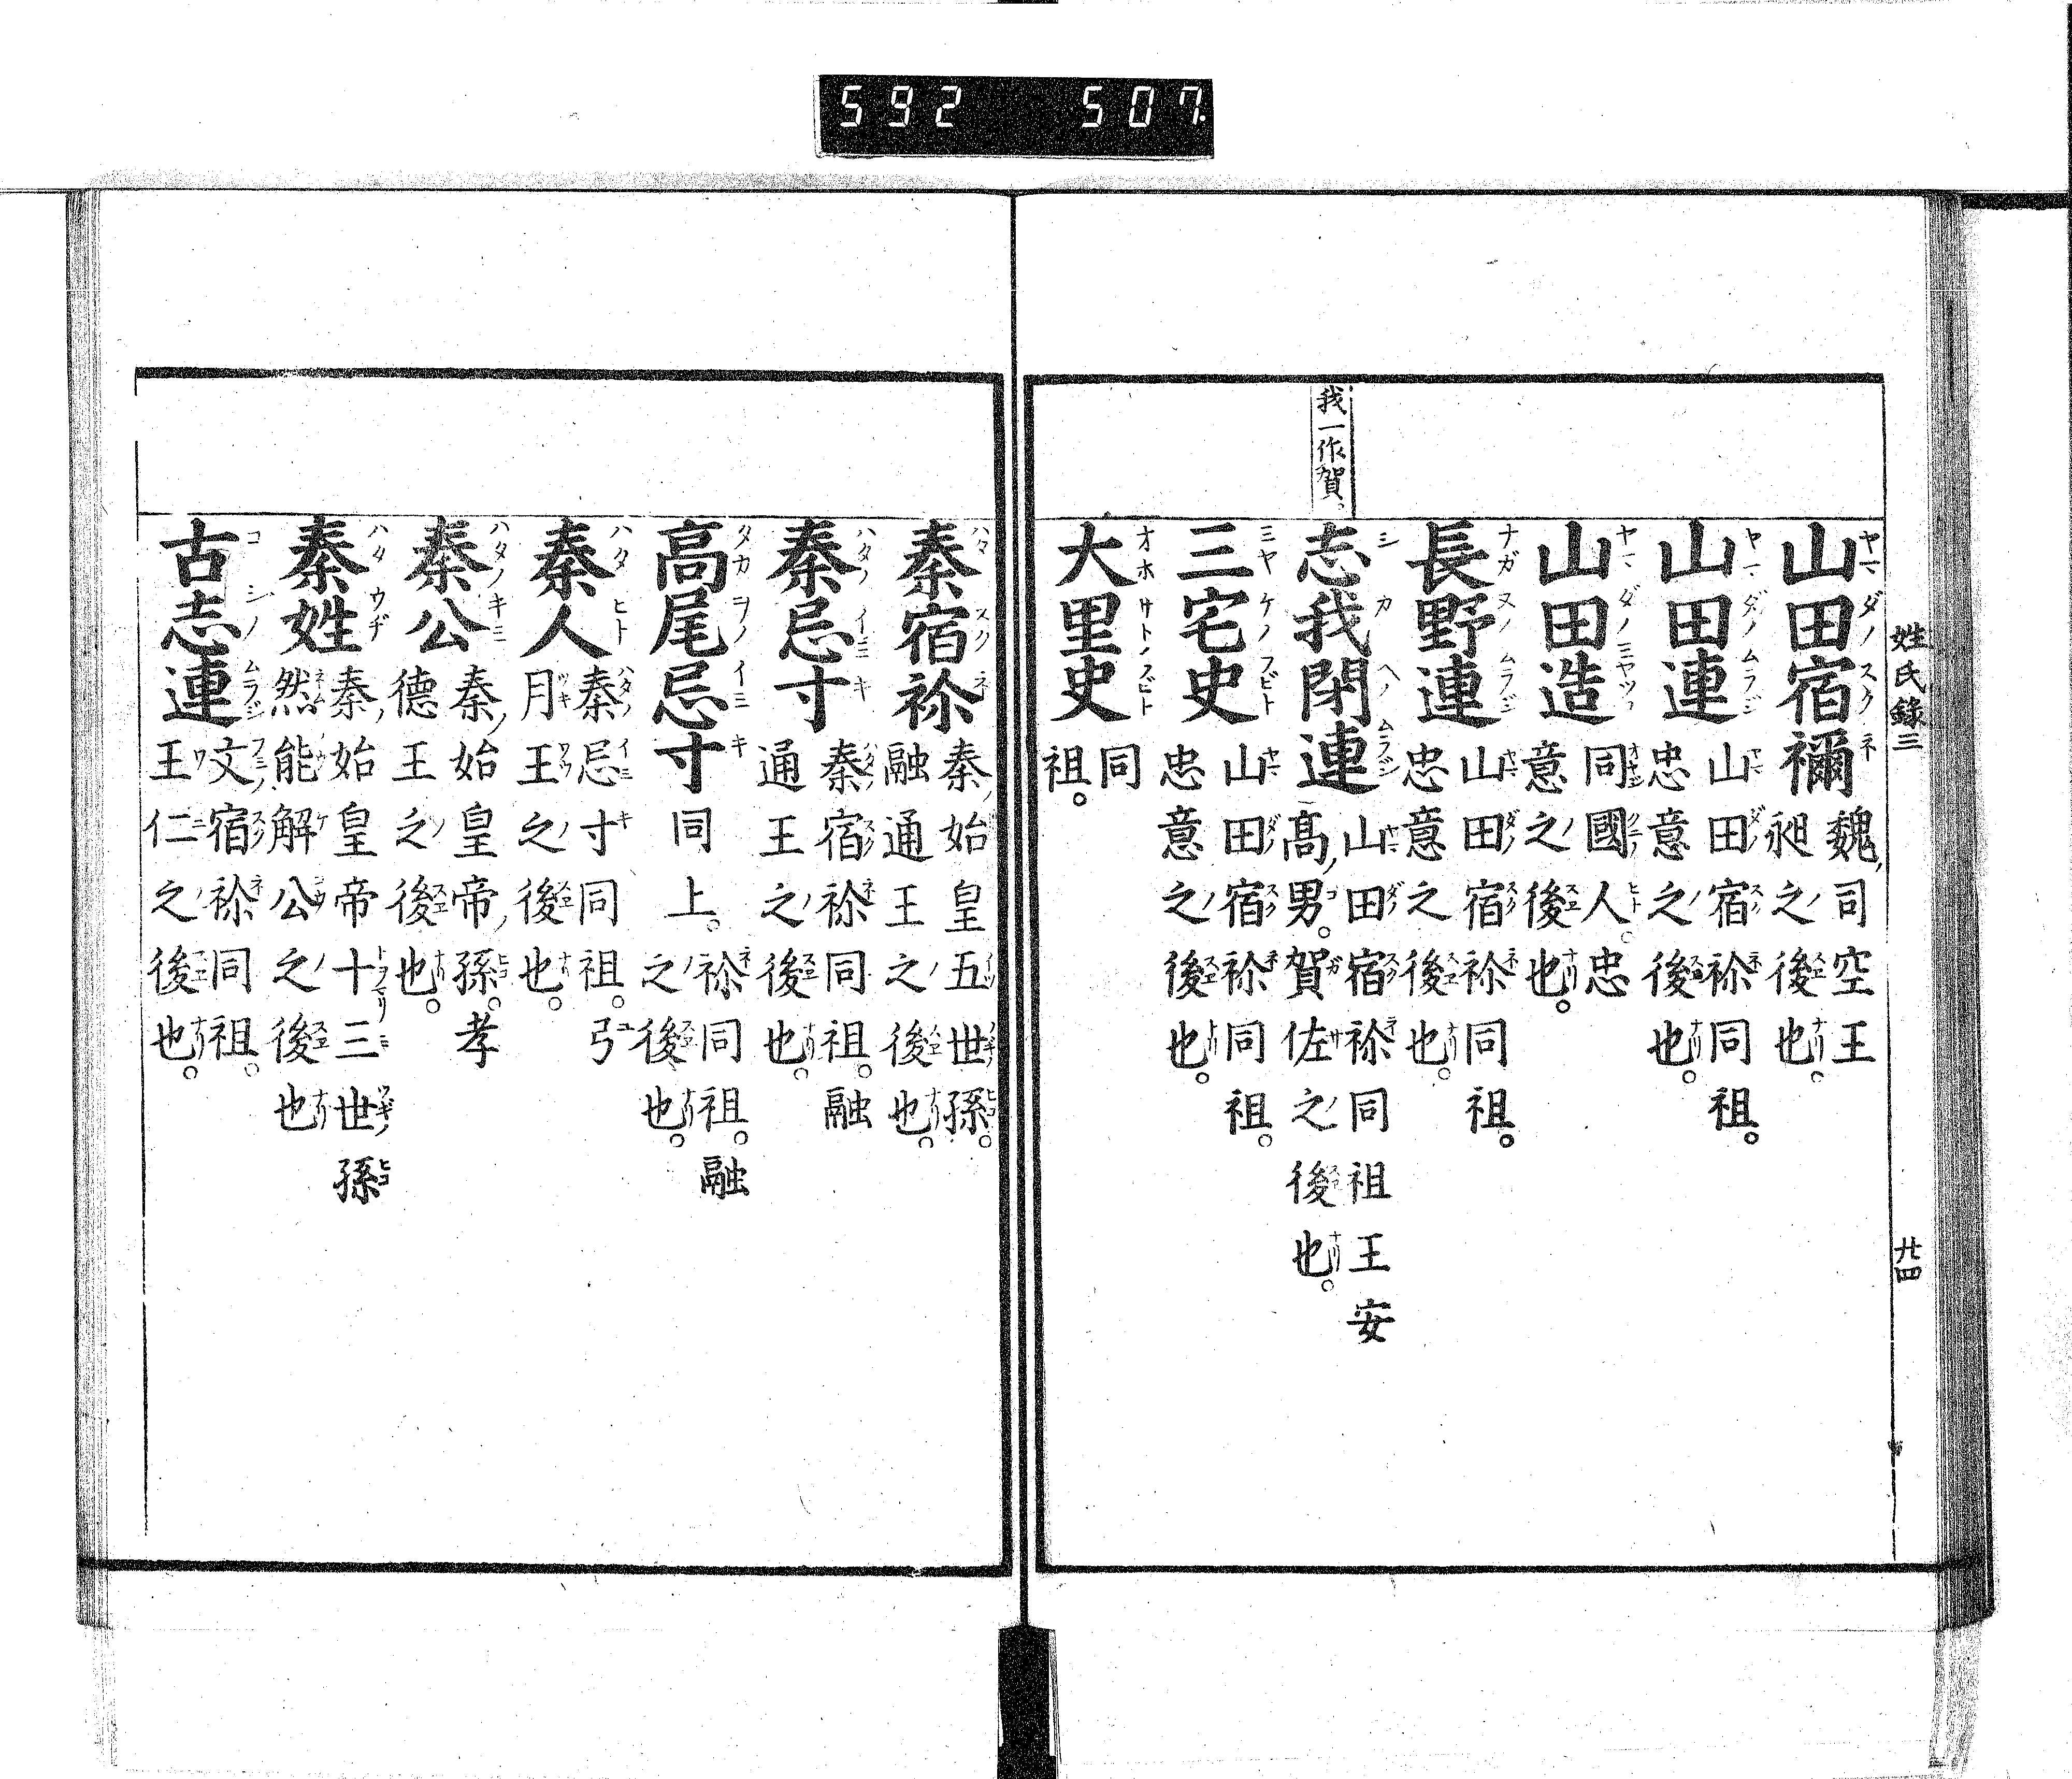 592 507.
姓氏錄三
廿四
山田宿禰 魏司空王
昶之後也。
山田連 山田宿祢同祖。
忠意之後也。
山田造 同國人。忠
意之後也。
長野連 山田宿祢同祖。
忠意之後也。
我一作賀。
志我閉連 山田宿祢同祖王安
髙男。賀佐之後也。
三宅史 山田宿祢同祖。
忠意之後也。
大里史 同
祖。
秦宿祢 秦始皇五世孫。
融通王之後也。
秦忌寸 秦宿祢同祖。融
通王之後也。
高尾忌寸 同上。祢同祖。融
之後也。
秦人 秦忌寸同祖。弓
月王之後也。
秦公 秦始皇帝孫。孝
德王之後也。
秦姓 秦始皇帝十三世孫
然能解公之後也
古志連 文宿祢同祖。
王仁之後也。